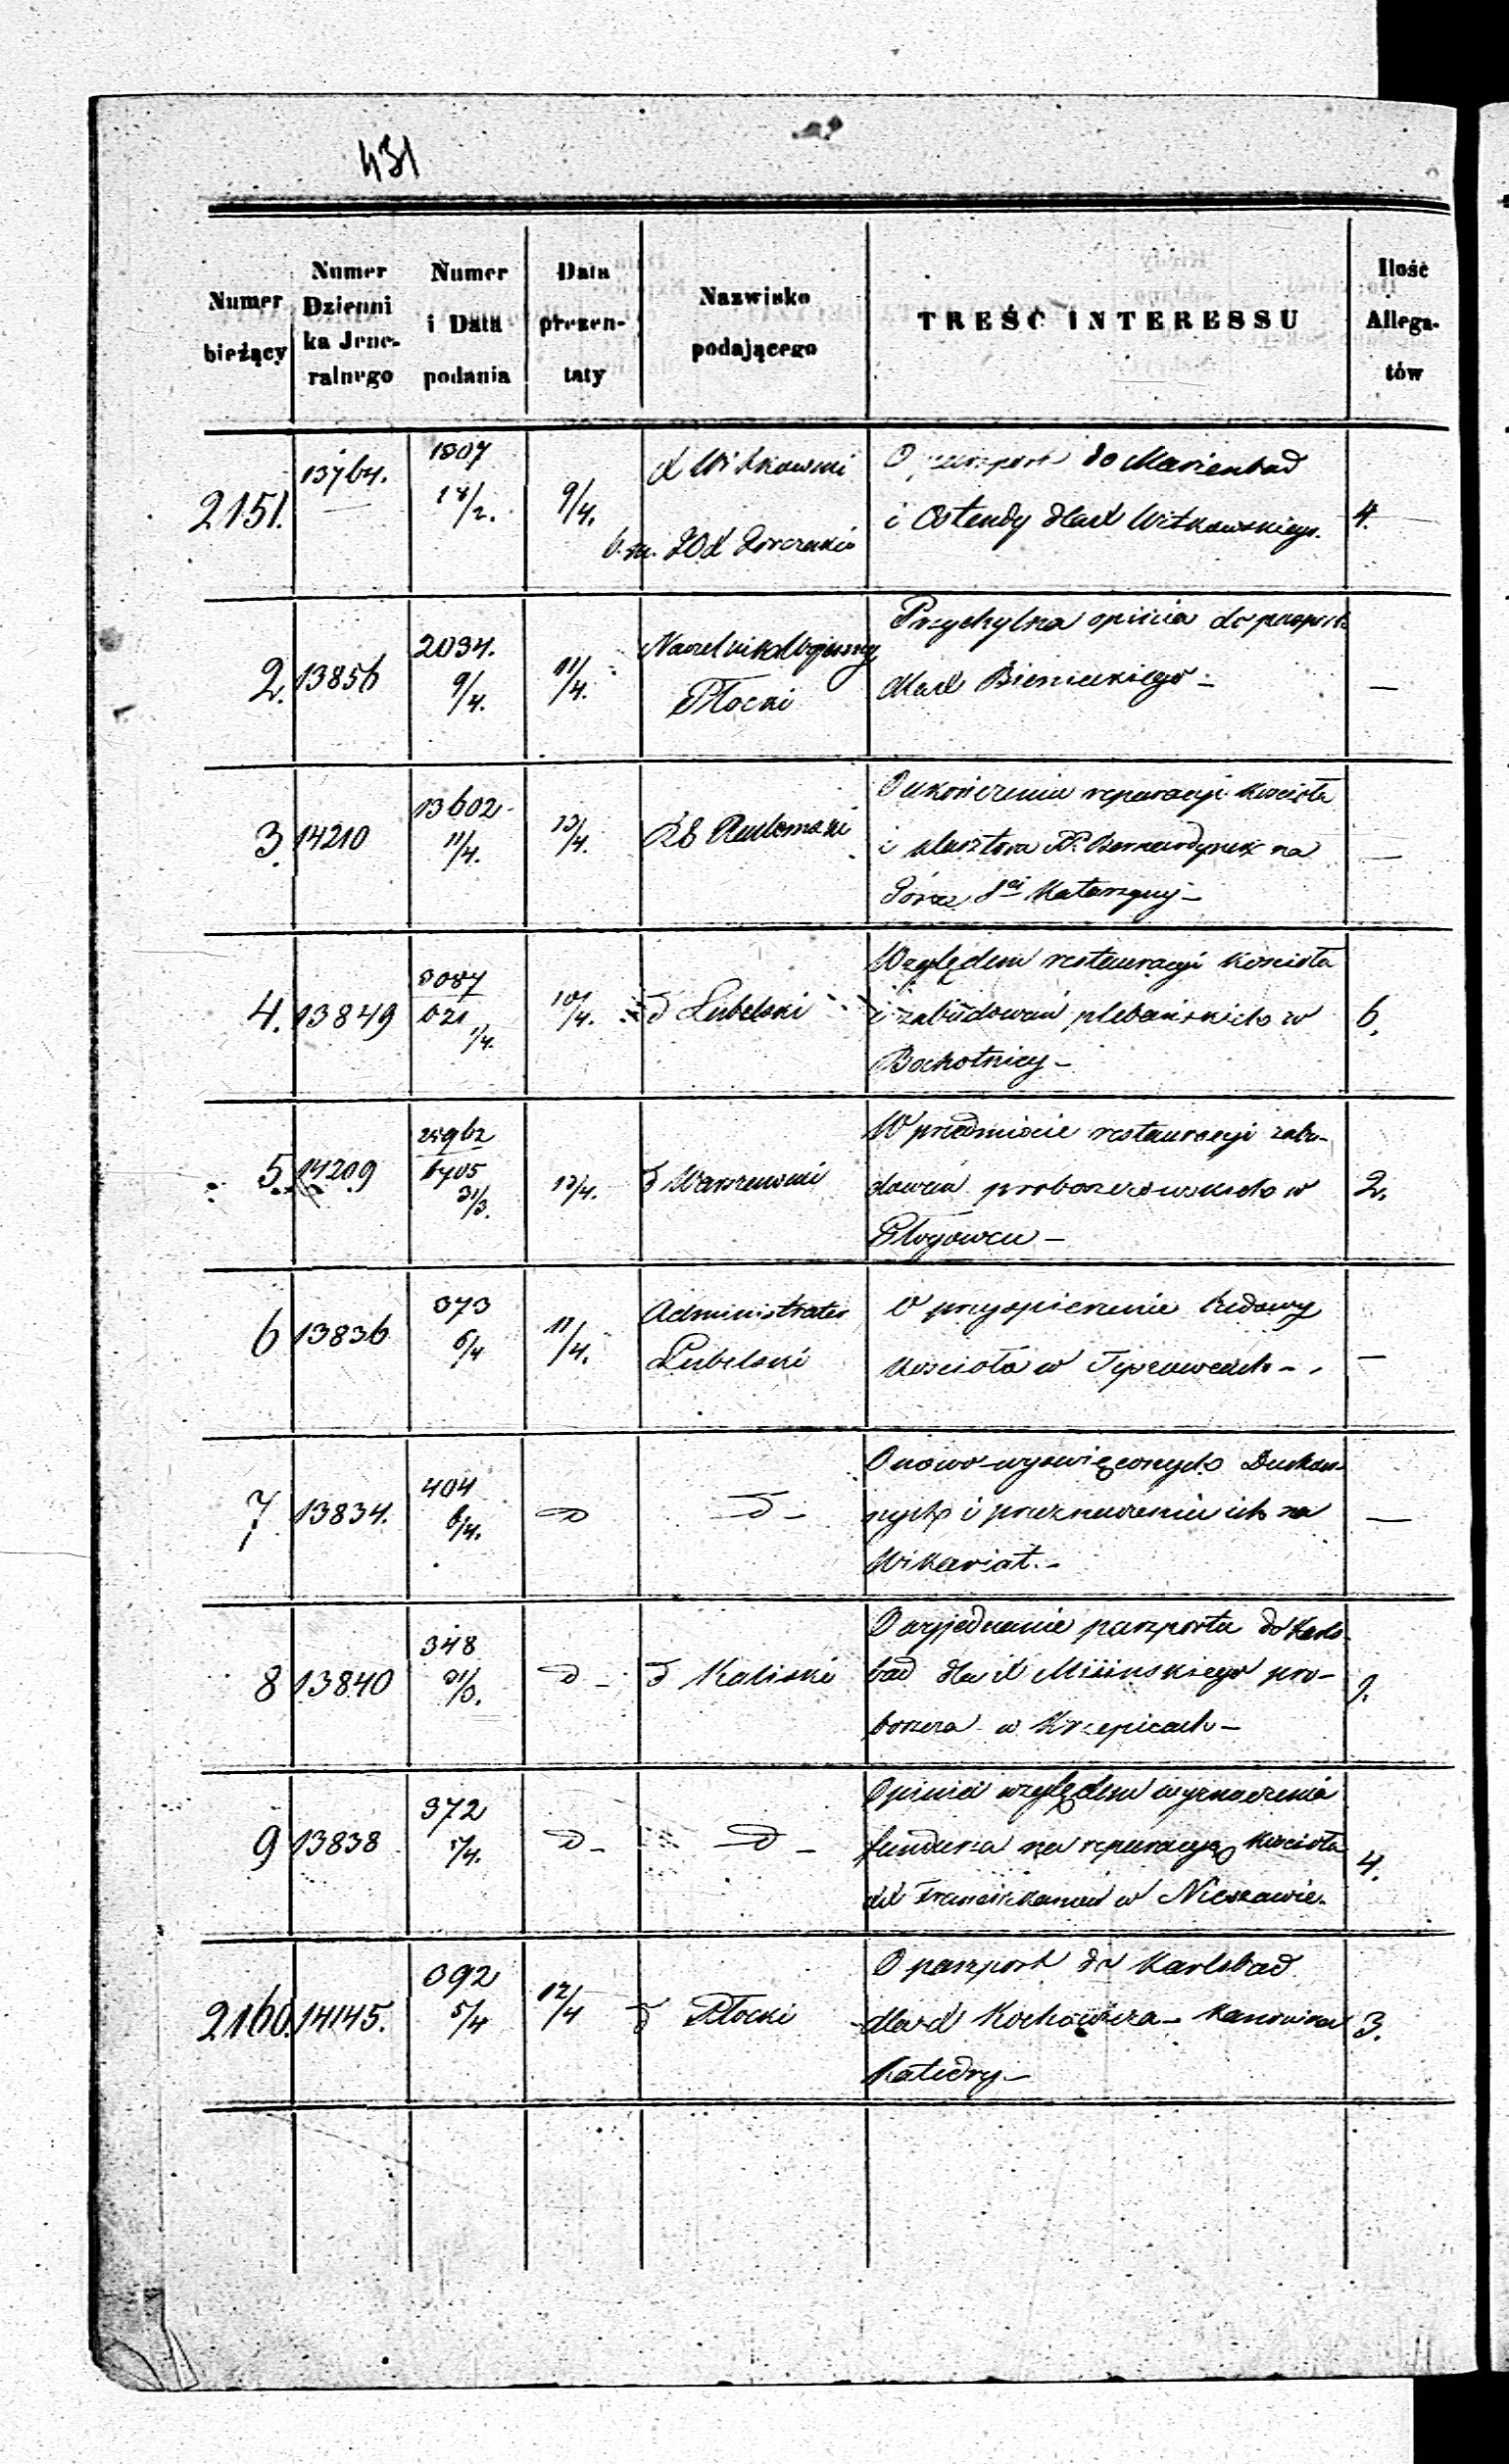 431
Numer bieżący
Numer Dziennika Jeneralnego
Numer i Data podania
Data prezentaty
Nazwisko podającego
TREŚĆ INTERESSU
Ilość Allegatów
2151. 13764. 1807 18/2. 9/4. X Witkowski
O paszport do Marienbad
i Ostendy dla X Witkowskiego. 4.
2. 13856 2034. 9/4. 11/4. Naczelnik Wojenny Płocki
Przychylna opinia do paszport.
dla X Bienieckiego –
3. 14210 13602 11/4. 13/4. RG Radomski
O ukończeniu reparacyi kościoła
i klasztora PP. Bernardynek na
Górze Sej Katarzyny –
4. 13849 621 1/4. 10/4. d Lubelski
Względem restauracyi kościoła
i zabudowań plebańskich w
Bochotnicy – 6.
5. 14209 6405 31/3. 13/4. d Warszawski
W przedmiocie restauracyi zabu-
dowań proboszczowskich w 2.
6 13836 373 6/4 11/4. Administrator Lubelski
O przyspieszenie budowy
kościoła w
7 13834. 404 6/4. d d –
O nowo-wyświęconych Duchow-
nych i przeznaczeniu ich na
Wikariat. –
8 13840 348 31/3. d – d Kaliski
O wyjednanie paszportu do Karls-
bad dla X pro-
boszcza w Krzepicach –
9 13838 372 d – d –
Opinia względem wyznaczenia
fundusza na reparacyę kościoła
XX Franciszkanów w Nieszawie. 4.
2160. 14145. 392 5/4 12/4 d Płocki
O paszport do Karlsbad
dla X kanonika 3.
Katedry –